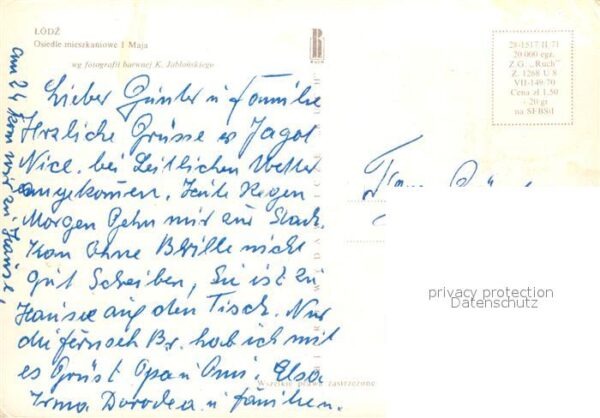 ŁÓDŹ
Osiedle mieszkaniowe 1 Maja
wg fotografii barwnej K. Jabłońskiego
28-1517 II 71
20.000 egz.
Z.G. „Ruch”
Z. 1268 U 8
VII-149-70
Cena zł 1,50
+ 20 gr
na SFBSiI
Lieber Günter u Familie
Herzliche Grüsse
Nice. bei Leitlichen Wetter
angekomen. Heute Regen
Morgen Gehn mir zur Stadt.
Kan Ohne Brille nicht
gut Schreiben, Sie ist zu
Hause auf den Tisch. Nur
die fernseh Br. hab ich mit
es Grüst Opa u Omi. Elsa
Irma Dorodea u familien.
am 24 kom wir zu Hause,
Wszelkie prawa zastrzeżone
privacy protection
Datenschutz